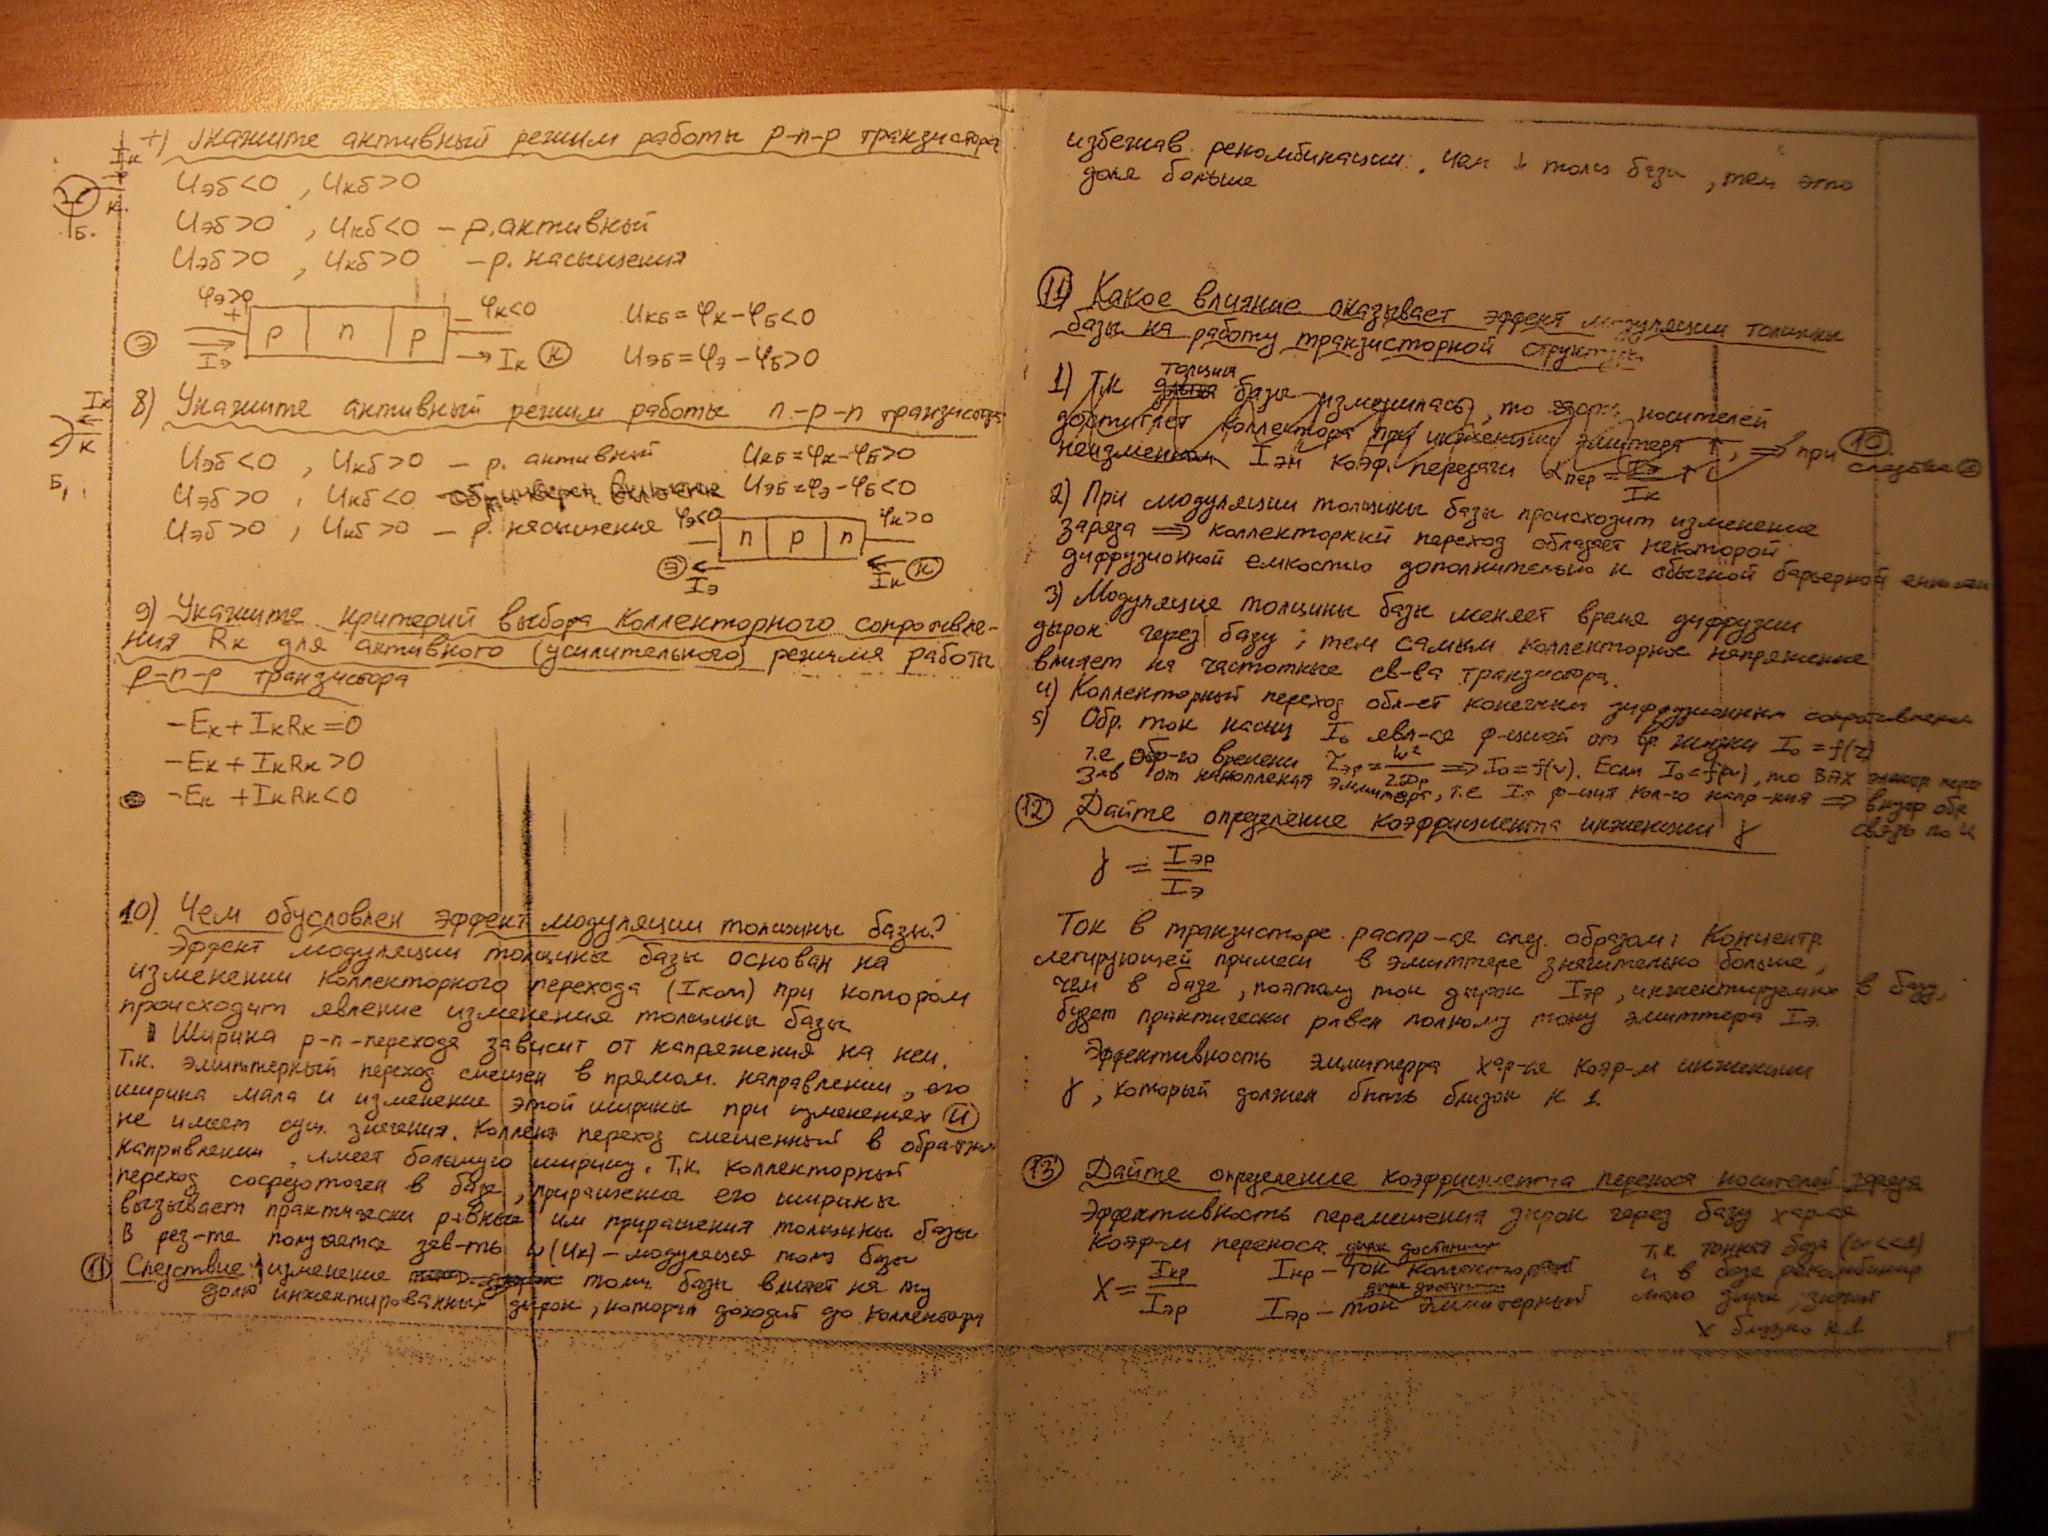 7) Укажите активный режим работы p-n-p транзистора
Uэб<0 , Uкб>0
Uэб>0 , Uкб<0 – р.активный
Uэб>0 , Uкб>0 – р. насыщения
Iк
К.
Б.
φэ>0
+
p n p
– φк<0
Э
Iэ
Iк К
Uкб = φк – φб<0
Uэб = φэ – φб>0
8) Укажите активный режим работы n-p-n транзистора
Iк
К
Б
Uэб<0 , Uкб>0 – р. активный
Uэб>0 , Uкб<0
Uэб>0 , Uкб>0 – р. насыщения
Uкб = φк – φб>0
Uэб = φэ – φб<0
φэ<0
n p n
φк>0
Э
Iэ
Iк
К
9) Укажите критерий выбора коллекторного сопротивле-
ния Rк для активного (усилительного) режима работы
p-n-p транзистора
-Eк + IкRк = 0
-Eк + IкRк > 0
-Eк + IкRк < 0
10) Чем обусловлен эффект модуляции толщины базы?
Эффект модуляции толщины базы основан на
изменении коллекторного перехода (Iкол) при котором
происходит явление изменения толщины базы
Ширина p-n-перехода зависит от напряжения на нем.
Т.к. эмиттерный переход смещен в прямом. направлении, его
ширина мала и изменение этой ширины при изменениях U
не имеет сущ. значения. Коллект переход смещенный в обратном
направлении, имеет большую ширину. Т.к. коллекторный
переход сосредоточен в базе, приращение его ширины
вызывает практически равные им приращения толщины базы
В рез-те получается зав-ть w(Uк) – модуляция толщ базы
11 Следствие: изменение толщ. базы влияет на ту
долю инжектированных дырок, которая доходит до коллектора
избежав. рекомбинации. Чем ↓ толщ базы, тем эта
доля больше
11 Какое влияние оказывает эффект модуляции толщины
базы на работу транзисторной структуры
1) Т.к толщина базы изменилась, то носителей
достигает коллектора при инжекции эмиттера ↑, ⇒ при 10
неизменном Iэн коэф. передачи αпер = Iэ/Iк ↑ следствие
2) При модуляции толщины базы происходит изменение
заряда ⇒ коллекторный переход обладает некоторой
диффузионной емкостью дополнительно к обычной барьерной
3) Модуляция толщины базы меняет время диффузии
дырок через базу; тем самым коллекторное напряжение
влияет на частотные св-ва транзистора.
4) Коллекторный переход обл-ет конечным диффузионным сопротивлением
5) Обр. ток насыщ I₀ явл-ся ф-цией от вр. жизни I₀ = f(τ)
т.е. обр-го времени τэр = w²/2Dp ⇒ I₀ = f(w). Если I₀ = f(w), то ВАХ
эмиттера, т.е ф-ция кол-го напр-ния ⇒ внутр обр
связь по U
12 Дайте определение коэффициента инжекции γ
γ = Iэр/Iэ
Ток в транзисторе распр-ся след. образом: Концентр
легирующей примеси в эмиттере значительно больше,
чем в базе, поэтому ток дырок Iэр, инжектируемых в базу,
будет практически равен полному току эмиттера Iэ
Эффективность эмиттера хар-ся коэф-м инжекции
γ, который должен быть близок к 1.
13 Дайте определение коэффициента переноса носителей заряда
Эффективность перемещения дырок через базу хар-ся
коэф-м переноса.
χ = Iкр/Iэр
Iкр – ток коллекторный
Iэр – ток эмиттерный
т.к тонкая база
и в базе рекомбинир
мало дырок, значит
χ близко к 1